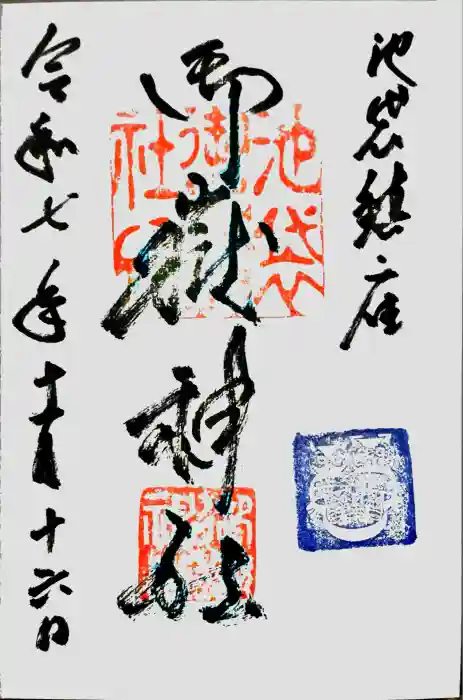 池袋鎮座
御嶽神社
令和七年十一月十六日
池袋
御
社